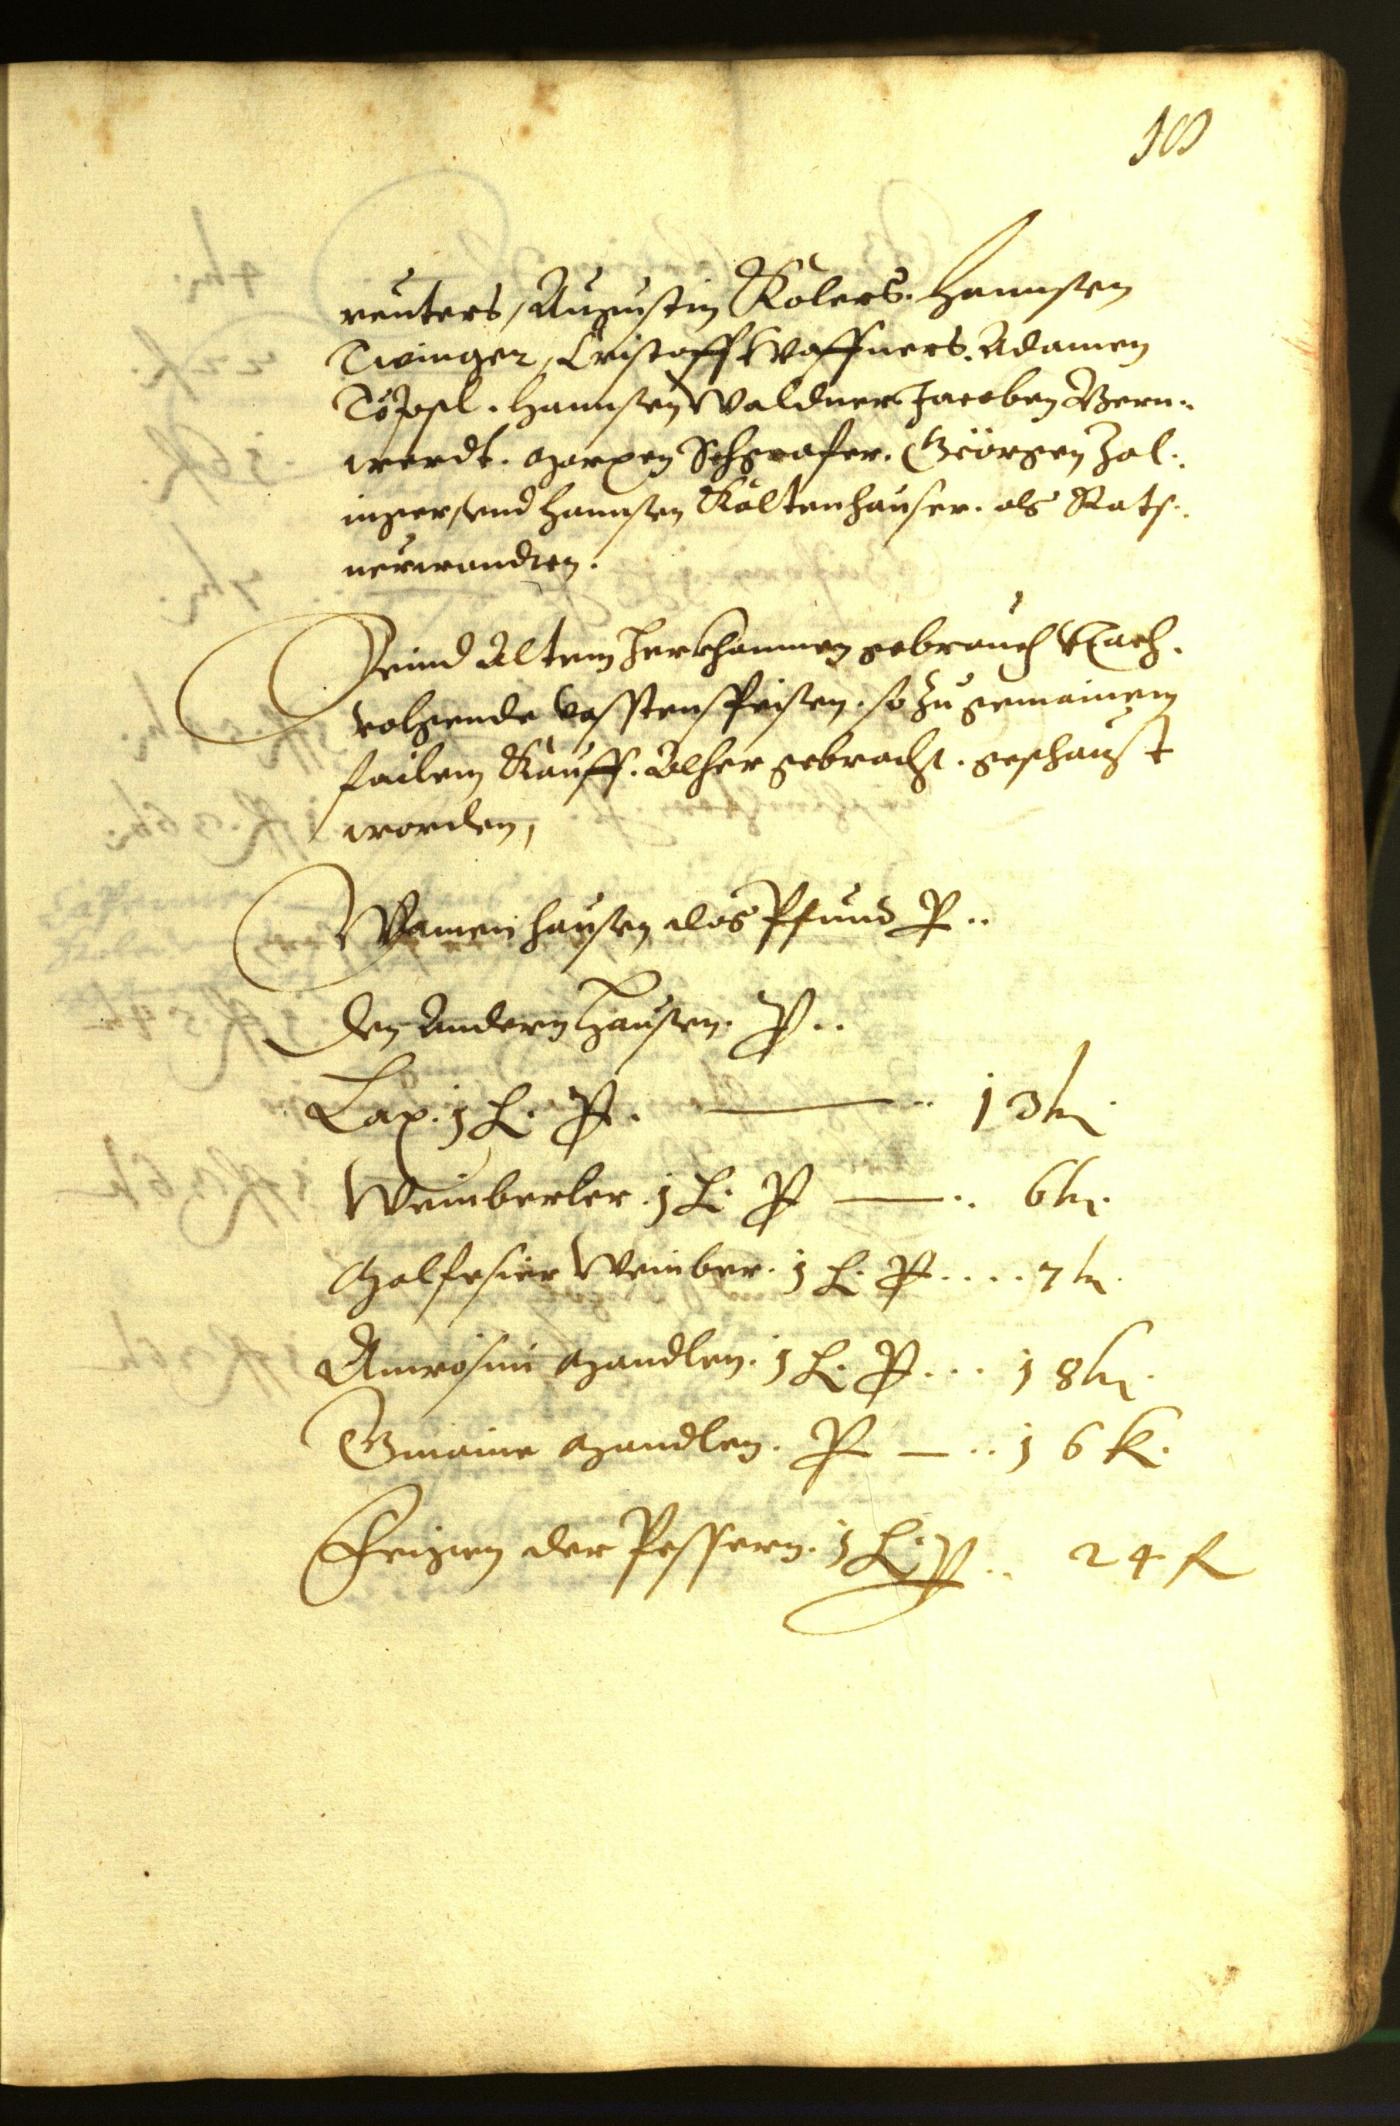 100
reuters, Augustin Kölers. Hannsen
Twinger, Cristoff Waffners. Adamen
Töpsl. Hannsen Waldner Jacoben Bern-
werdt. Marxen Schgrafer. Geörgen Zal-
inger vnd Hannsen Kaltenhauser. als Rats
uerwandten.
Seind Altem Herkhommen gebrauch Nach-
volgende vasstenspeisen. so zu gemainem
failem Kauff. Alher gebracht. geschauzt
worden,
Wamen hausen das Pfund P ..
den Andern Hausen. P ..
Lax. j L. P. 13 k
Weinberler. j L. P 6 k.
Malfesier Weinber. j L. P .... 7 k.
Amrosini Mandlen. j L. P ... 18 k.
Gmaine Mandlen. P 16 k.
Feigen der Pessern. j L. P .. 24 f